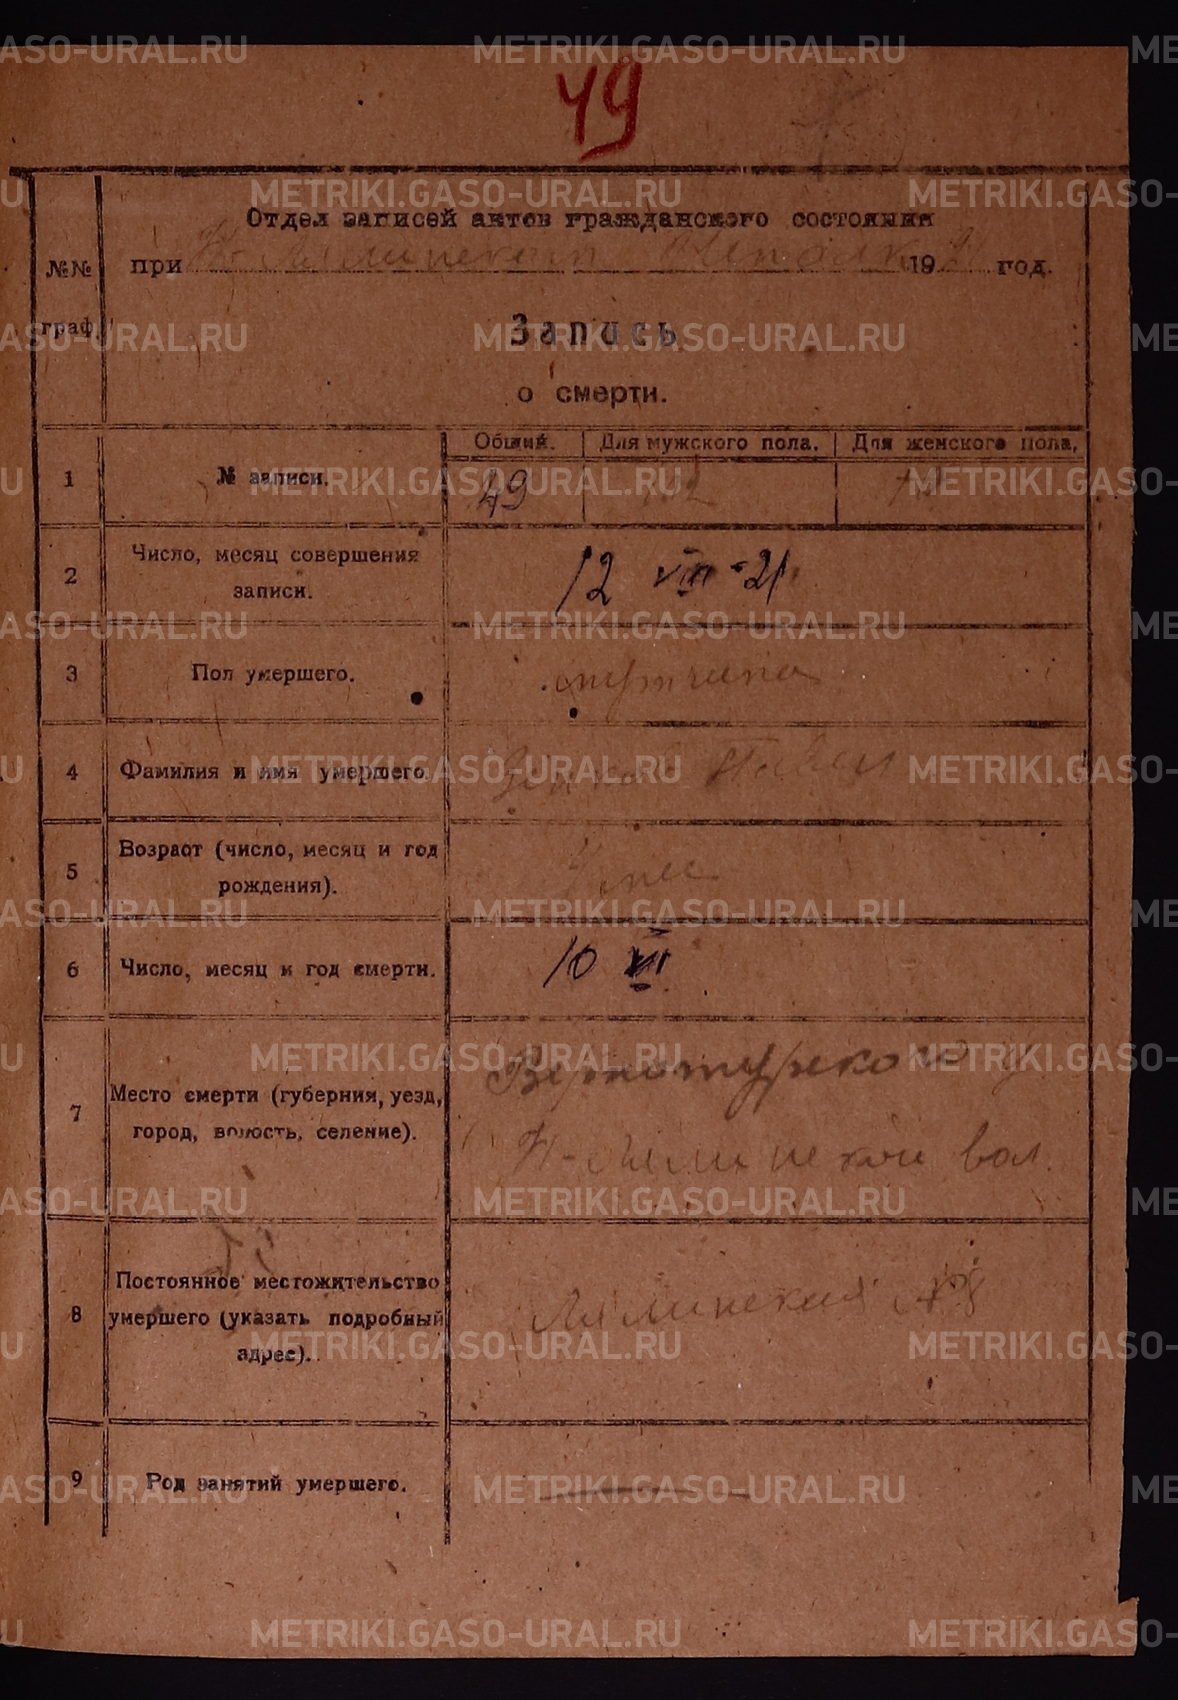 49
Отдел записей актов гражданского состояния
№№ граф.
при Н-Лялинском 1921 год.
Запись
о смерти.
Общий. Для мужского пола. Для женского пола.
1 № записи. 49
2 Число, месяц совершения
записи. 12 VIII-21
3 Пол умершего. мужчина
4 Фамилия и имя умершего. Павел
5 Возраст (число, месяц и год
рождения). мес
6 Число, месяц и год смерти. 10 VII
7 Место смерти (губерния, уезд,
город, волость, селение).
Верхотурского у
Н-Лялинской вол.
8 Постоянное местожительство
умершего (указать подробный
адрес).
Лялинский
9 Род занятий умершего.
METRIKI.GASO-URAL.RU